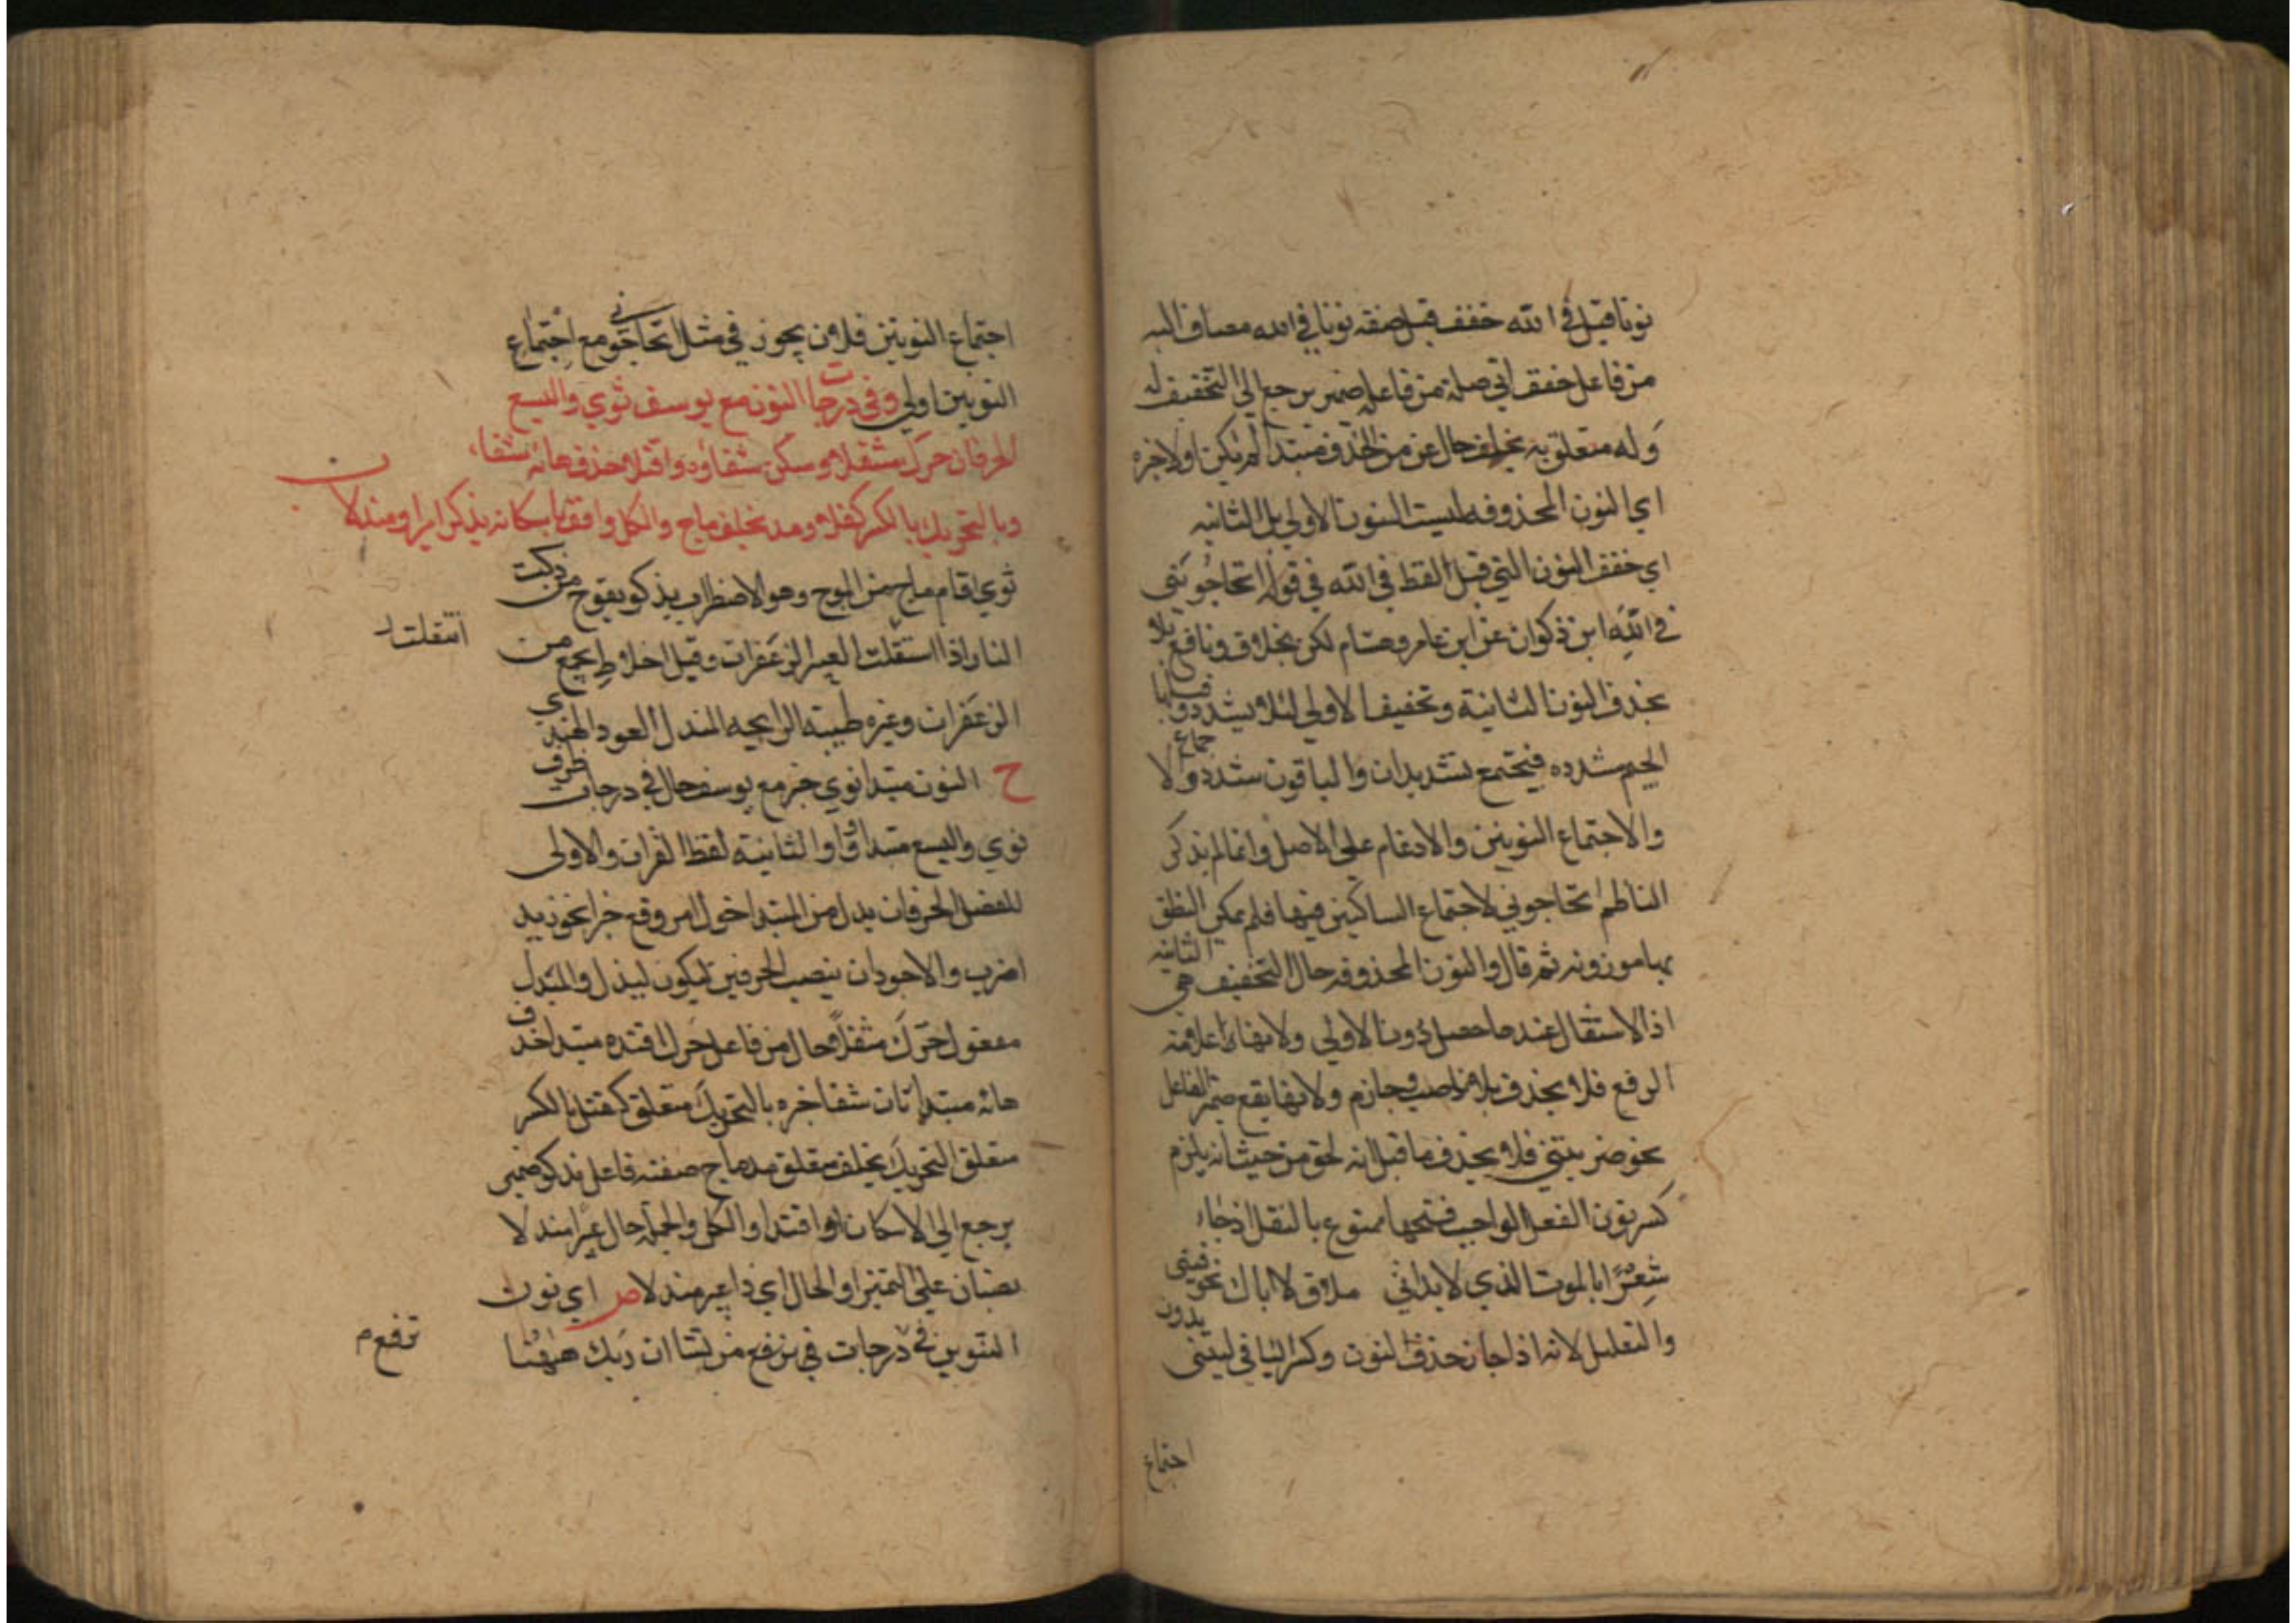 نونا قبل في الله خفف قبل صفة نونا في الله مضاف اليه
من فاعل خفف اتي صلة من فاعله ضمير يرجع الي التخفيف له
وله متعلق به بخلف حال عن من الحذف مبتدا لم يكن اولا خبره
اي النون المحذوفه ليست النون الاولي بل الثانيه
اي خفف النون التي قبل لفظ في الله في قوله اتحاجوني
في الله ابن ذكوان عن ابن عامر وهشام لكن بخلاف ونافع بلا
بحذف النون الثانية وتخفيف الاولي لئلا يشدد
الجيم مشدده فيجتمع تشديدان والباقون شددوا لا
والاجتماع النونين والادغام علي الاصل وانما لم يذكر
الناظم اتحاجوني لاجتماع الساكنين فيها فلم يمكن النطق
بها موزونه ثم قال والنون المحذوفه حال التخفيف هي الثانيه
اذ الاستثقال عندها حصل دون الاولي ولانها علامة
الرفع فلا يحذف بلا ناصب وجازم ولانها يقع ضمير الفاعل
نحو ضربتني فلا يحذف ما قبل انه لحق من حيث انه يلزم
كسر نون الفعل الواجب فتحها ممنوع بالنقل اذ جاء
شعرا ابالموت الذي لا بد اني ملاق لا اباك تخوفيني
والتعليل لانه اذا جاز حذف النون وكسر اليا في ليتني بدون
اجتماع
اجتماع النونين فلان يجوز في مثل اتحاجوني مع اجتماع
النونين اولي وفي درجات النون مع يوسف ثوي واليسع
الحرفان حرك مثقلا وسكن شفاء واقتده حذف هائه شفاء
وبالتحريك بالكسر كفلا ومد بخلف ماج والكل واقف باسكانه يذكو عبيرا ومندلا
ثوي اقام ماج من الموج وهو الاضطراب يذكو يفوح من ذكت
النار اذا استقلت العبير الزعفران وقيل اخلاط يجمع من
انتقلت
الزعفران وغيره طيبته الرايحه المندل العود الهندي
ح النون مبتدا ثوي خبر مع يوسف حال في درجات ظرف
ثوي واليسع مبتدا واو الثانية لفظ القران والاولي
للفصل الحرفان بدل من المبتدا حول امر وقع خبرا نحو زيد
اضرب والاجود ان ينصب الحرفين ليكون البدل والمبدل
مفعول حرك مثقلا حال من فاعل حرك اقتده مبتدا حذف
هائه مبتدا ثان شفا خبره بالتحريك متعلق كفل بالكسر
متعلق التحريك بخلف متعلق مد ماج صفته فاعل يذكو ضمير
يرجع الي الاسكان او اقتدا والكل والجملة حال عبيرا مندلا
نصبان علي التمييز او الحال اي ذا عبير مندلا ص اي نون
التنوين في درجات في نرفع من نشا ان ربك ههنا
نرفع م